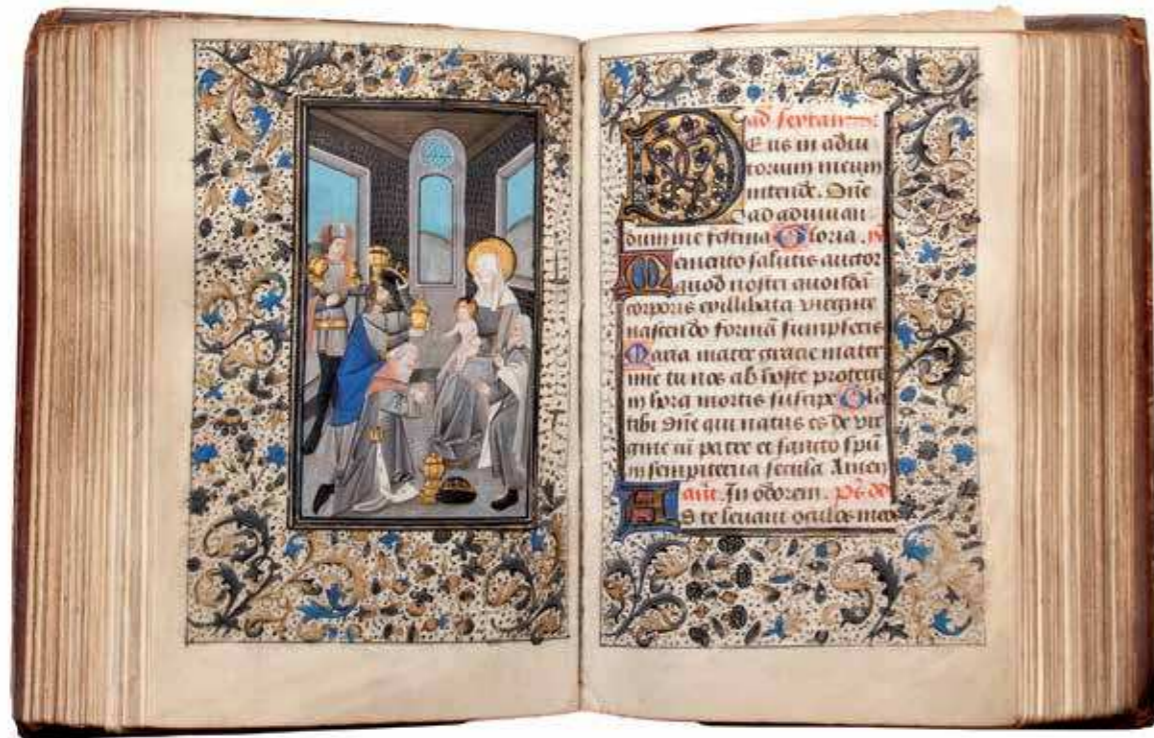 ad sextam
Deus in adiu
torium meum
intende. Dñe
ad adiuuan
dum me festina Gloria.
Memento salutis auctor
quod nostri quondã
corporis exillibata virgine
nascendo formã sumpseris
Maria mater gracie mater
mie tu nos ab hoste protege
in hora mortis suscipe Gla
tibi dñe qui natus es de vir
gine cũ patre et sancto spũ
in sempiterna secula Amen
añt. In odorem. ps dd
Ad te leuaui oculos meo